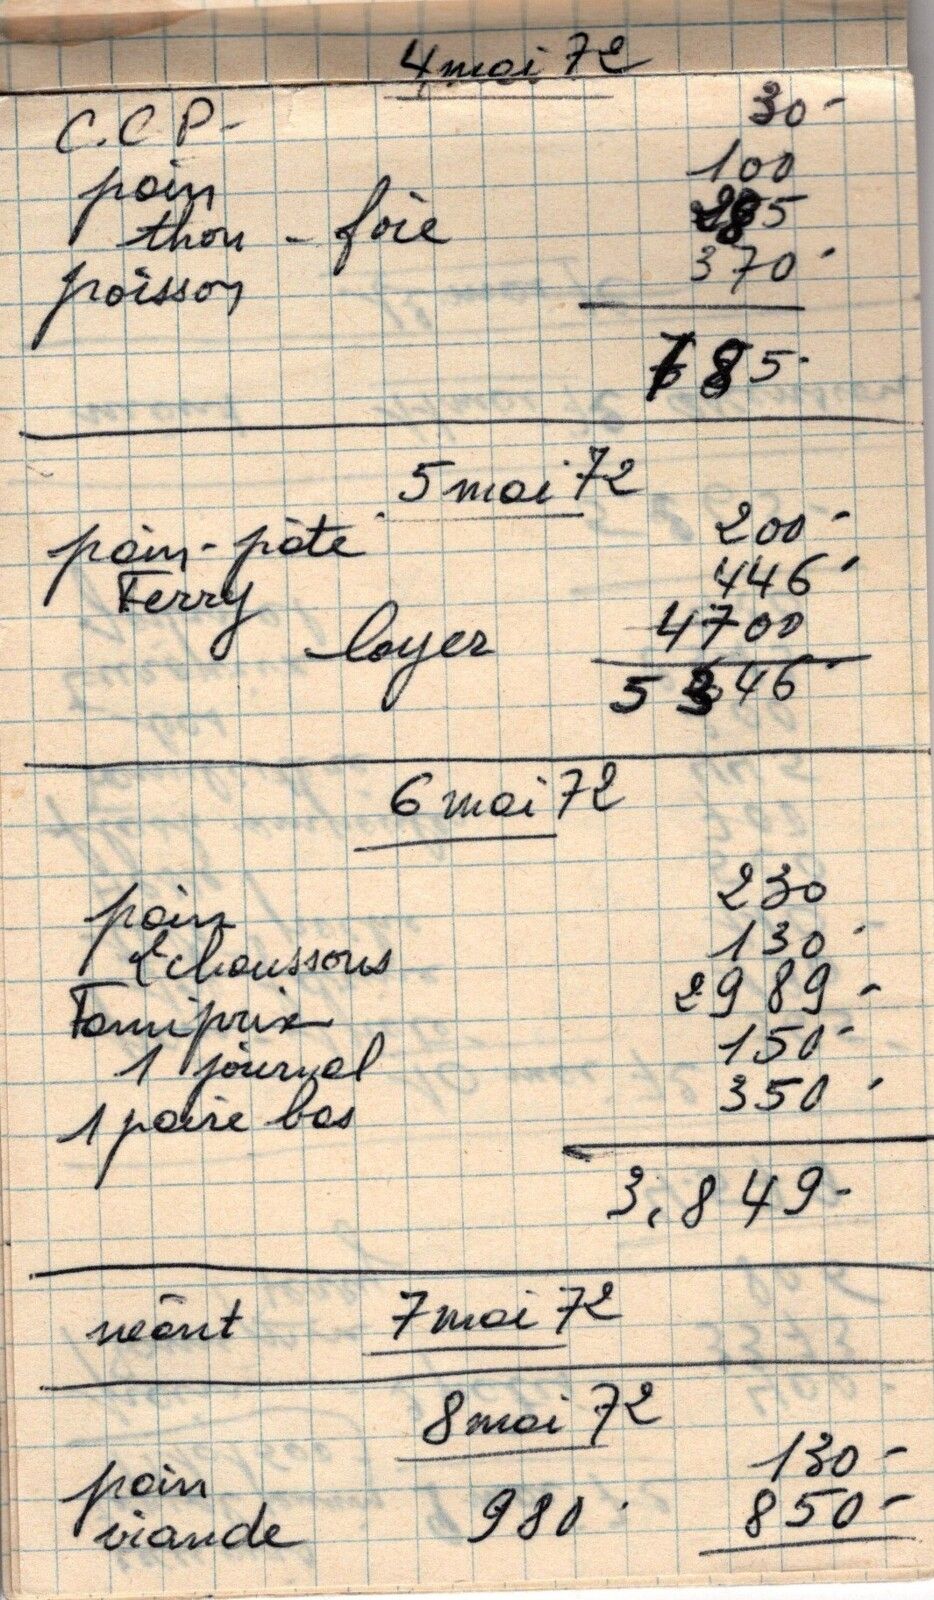 4 mai 72
C.C.P- 30-
pain 100
thon - foie 285
poisson 370-
785-
5 mai 72
pain - pâté 200-
Ferry 446-
loyer 4700
5346-
6 mai 72
pain 230
2 chaussons 130-
Famiprix 2989-
1 journal 150-
1 paire bas 350-
3.849-
néant 7 mai 72
8 mai 72
pain 130-
viande 980- 850-